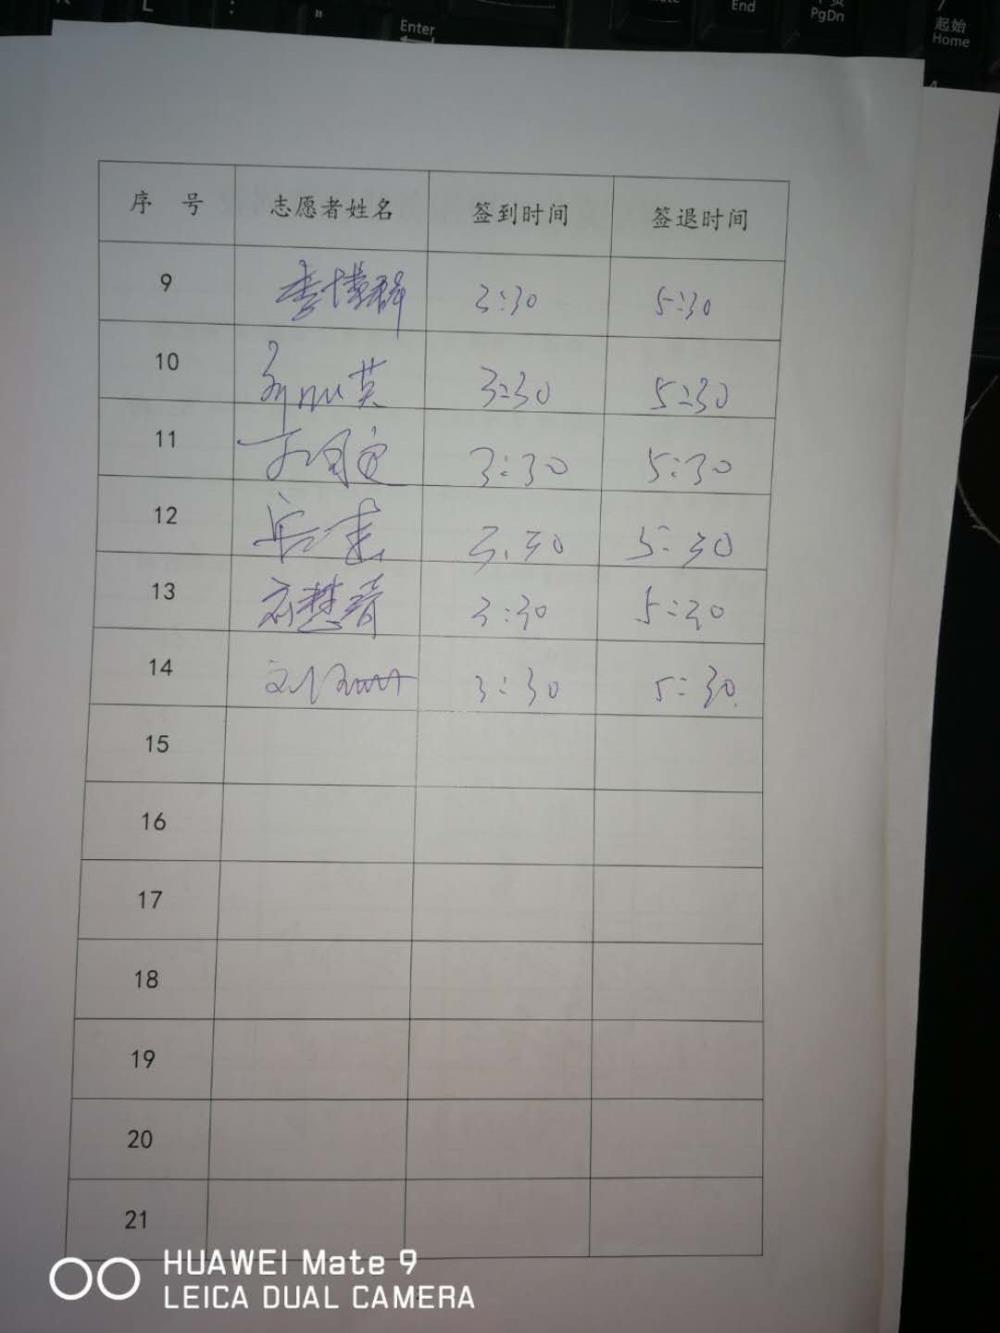 L
Enter
End
PgDn
起始
Home
序 号 志愿者姓名 签到时间 签退时间
9 李博稱 3:30 5:30
10 3:30 5:30
11 3:30 5:30
12 3:30 5:30
13 3:30 5:30
14 3:30 5:30
15
16
17
18
19
20
21
HUAWEI Mate 9
LEICA DUAL CAMERA